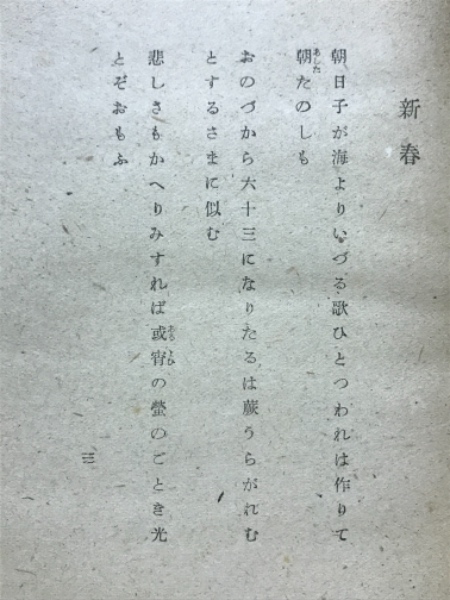 新春
朝日子が海よりいづる歌ひとつわれは作りて
朝たのしも
あした
おのづから六十三になりたるは蕨うらがれむ
とするさまに似む
悲しさもかへりみすれば或宵の螢のごとき光
あるよひ
とぞおもふ
三